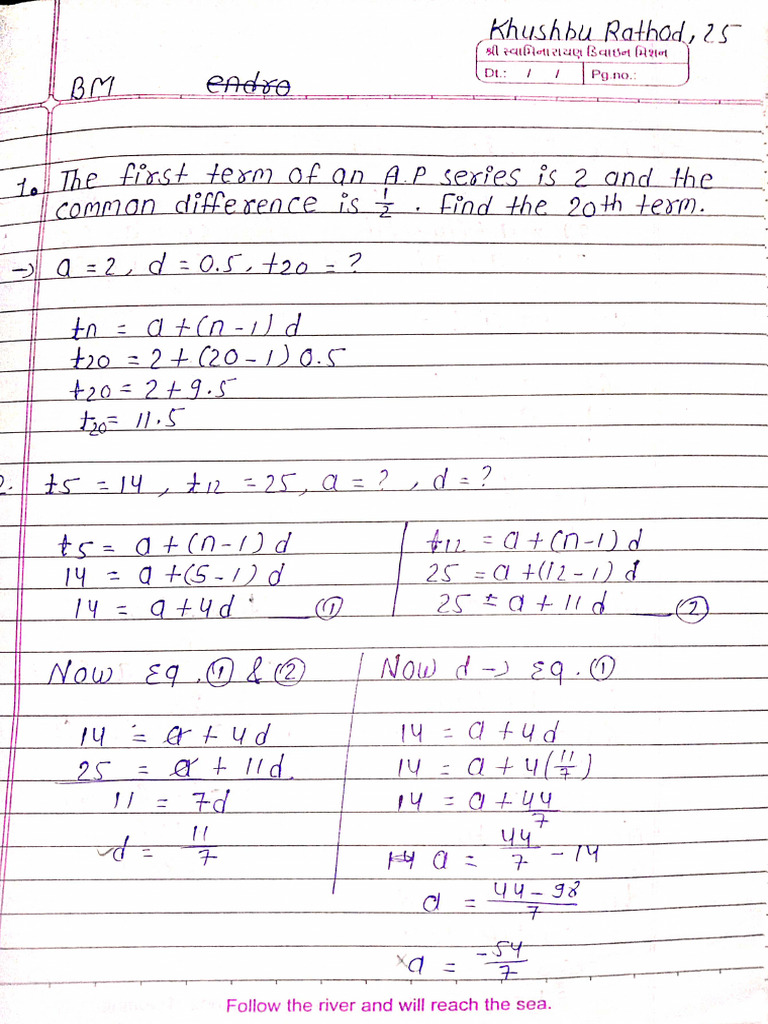 Khushbu Rathod, 25
શ્રી સ્વામિનારાયણ ડિવાઇન મિશન
Dt.: / / Pg.no.:
BM endro
1. The first term of an A.P series is 2 and the
common difference is 1/2 . Find the 20th term.
→ a = 2, d = 0.5, t20 = ?
tn = a + (n - 1) d
t20 = 2 + (20 - 1) 0.5
t20 = 2 + 9.5
t20 = 11.5
2. t5 = 14, t12 = 25, a = ?, d = ?
t5 = a + (n - 1) d
14 = a + (5 - 1) d
14 = a + 4d ①
t12 = a + (n - 1) d
25 = a + (12 - 1) d
25 = a + 11d ②
Now Eq. ① & ②
14 = a + 4d
25 = a + 11d
11 = 7d
d = 11/7
Now d → Eq. ①
14 = a + 4d
14 = a + 4(11/7)
14 = a + 44/7
14 a = 44/7 - 14
a = 44 - 98/7
a = -54/7
Follow the river and will reach the sea.